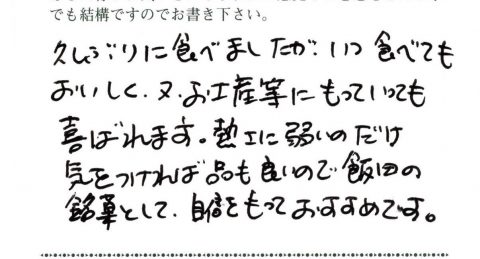 でも結構ですのでお書き下さい。
久しぶりに食べましたが、いつ食べても
おいしく、又、お土産等にもっていっても
喜ばれます。熱エに弱いのだけ
気をつければ品も良いので飯田の
銘菓として、自信をもっておすすめです。